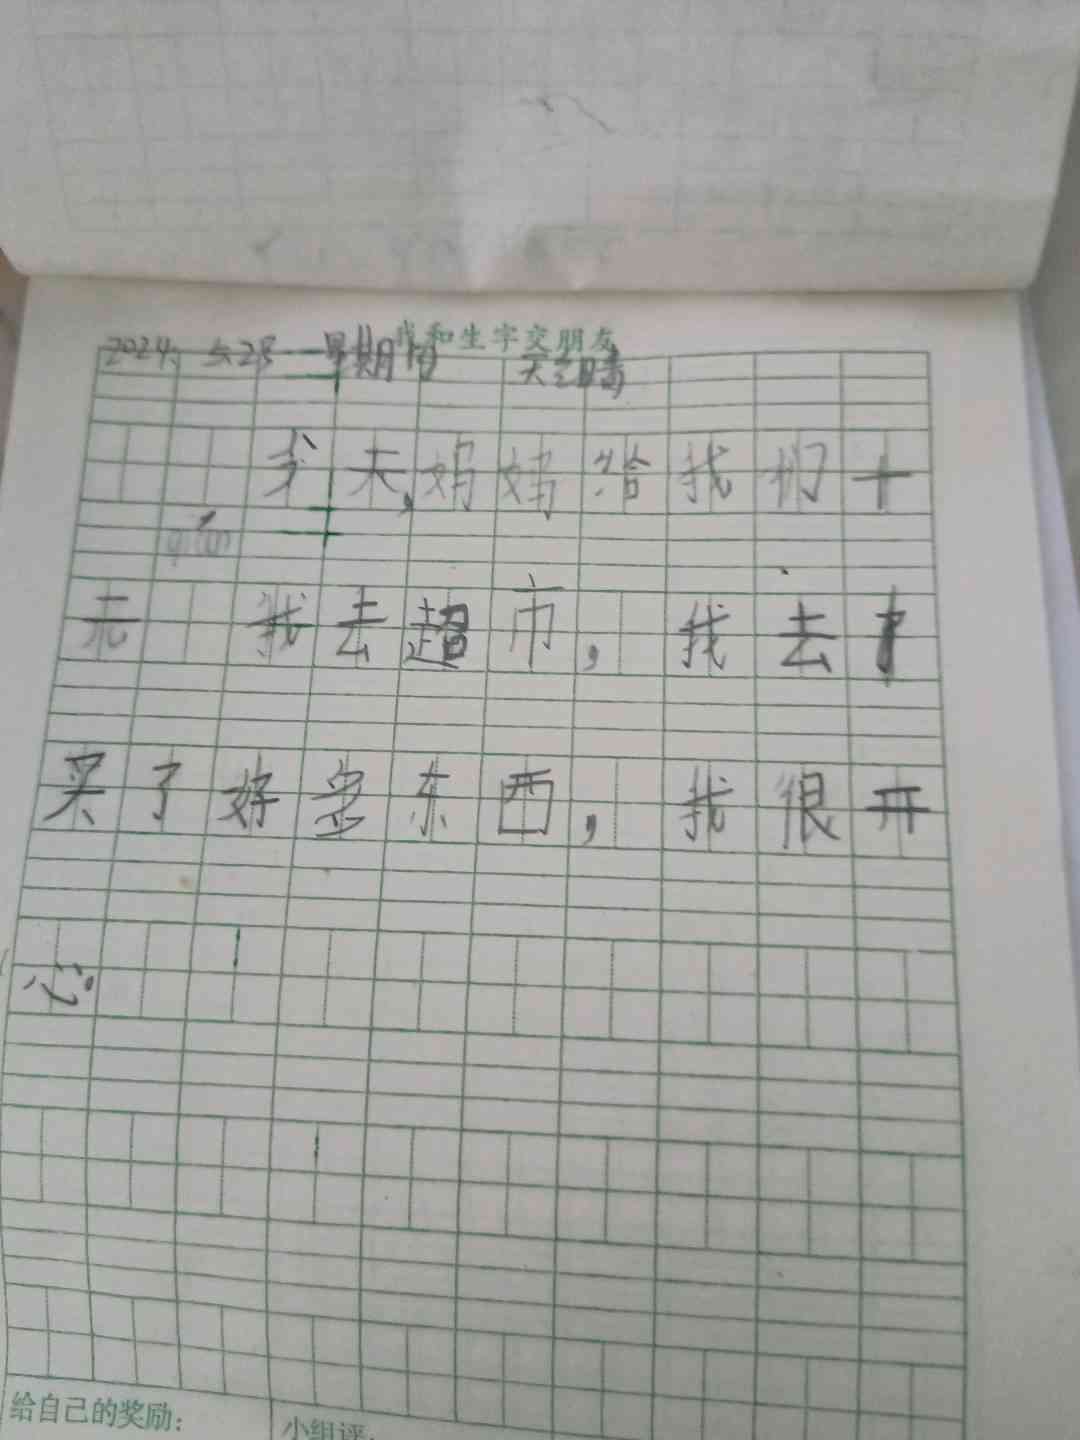 我和生字交朋友
2024. 星期 天气晴
天,妈妈给我们十
元 我去超市,我去
买了好多东西,我很开
心。
给自己的奖励:
小组评: